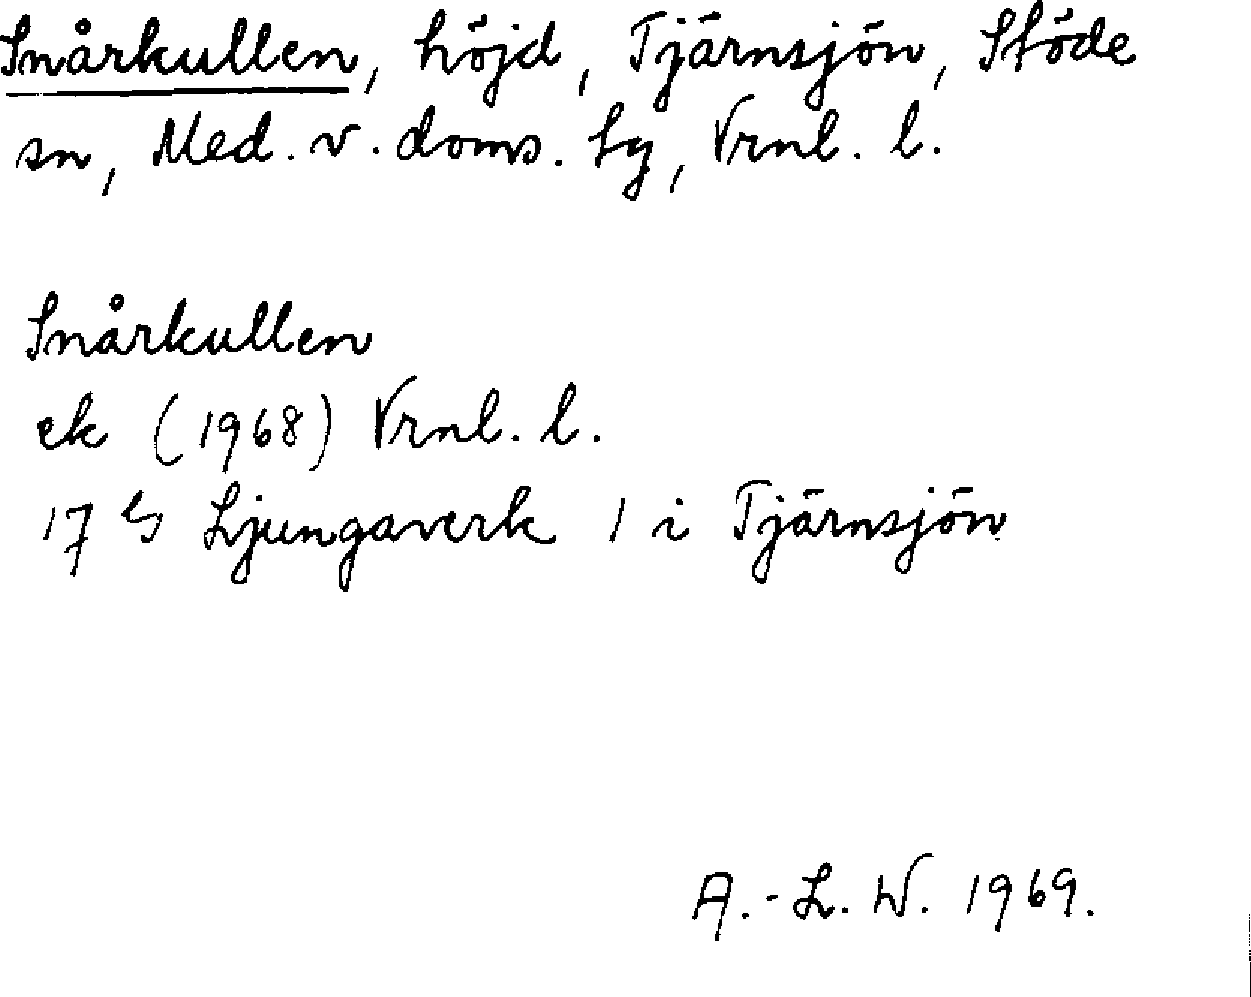 Snårkullen, höjd, Tjärnsjön, Stöde
sn, Med. v. doms. hg, Vrnl. l.
Snårkullen
ek (1968) Vrnl. l.
17 G Ljungaverk 1 i Tjärnsjön
A.-L. W. 1969.